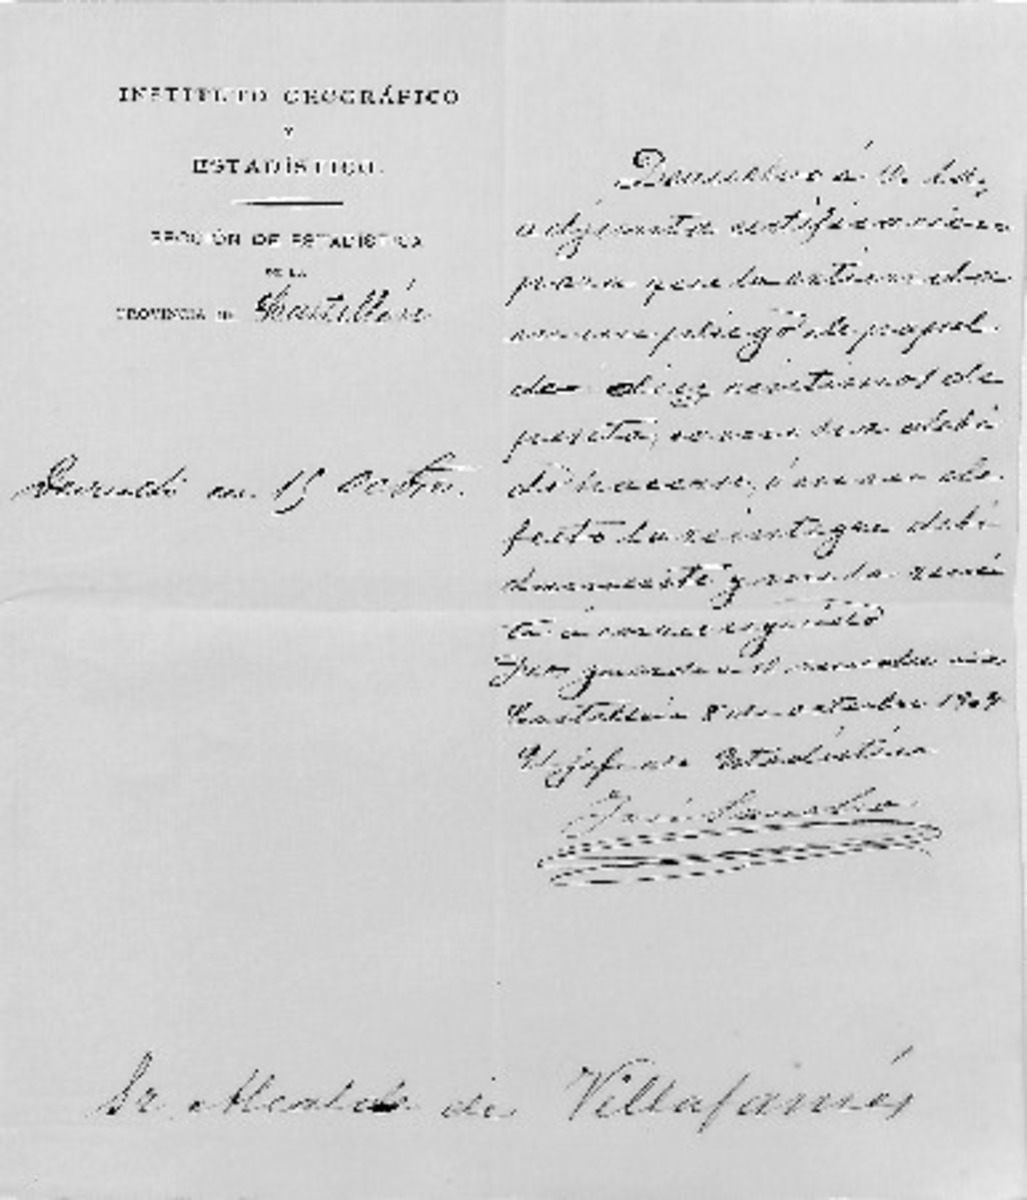 INSTITUTO GEOGRÁFICO
Y
ESTADÍSTICO.
SECCIÓN DE ESTADÍSTICA
DE LA
PROVINCIA DE Castellón
Devuelvo á V. la
adjunta certificacion
para que la extienda
en un pliego de papel
de diez centimos de
peseta, como se a debi
do hacerse, ó en su de
fecto la reintegre debi
damente y me la remi
ta á correo seguido
Dios guarde a V muchos
Castellón 8 de octubre 1904
El jefe de Estadistica
José Sancho
en 15 Octbre.
Sr Alcalde de Villafamés